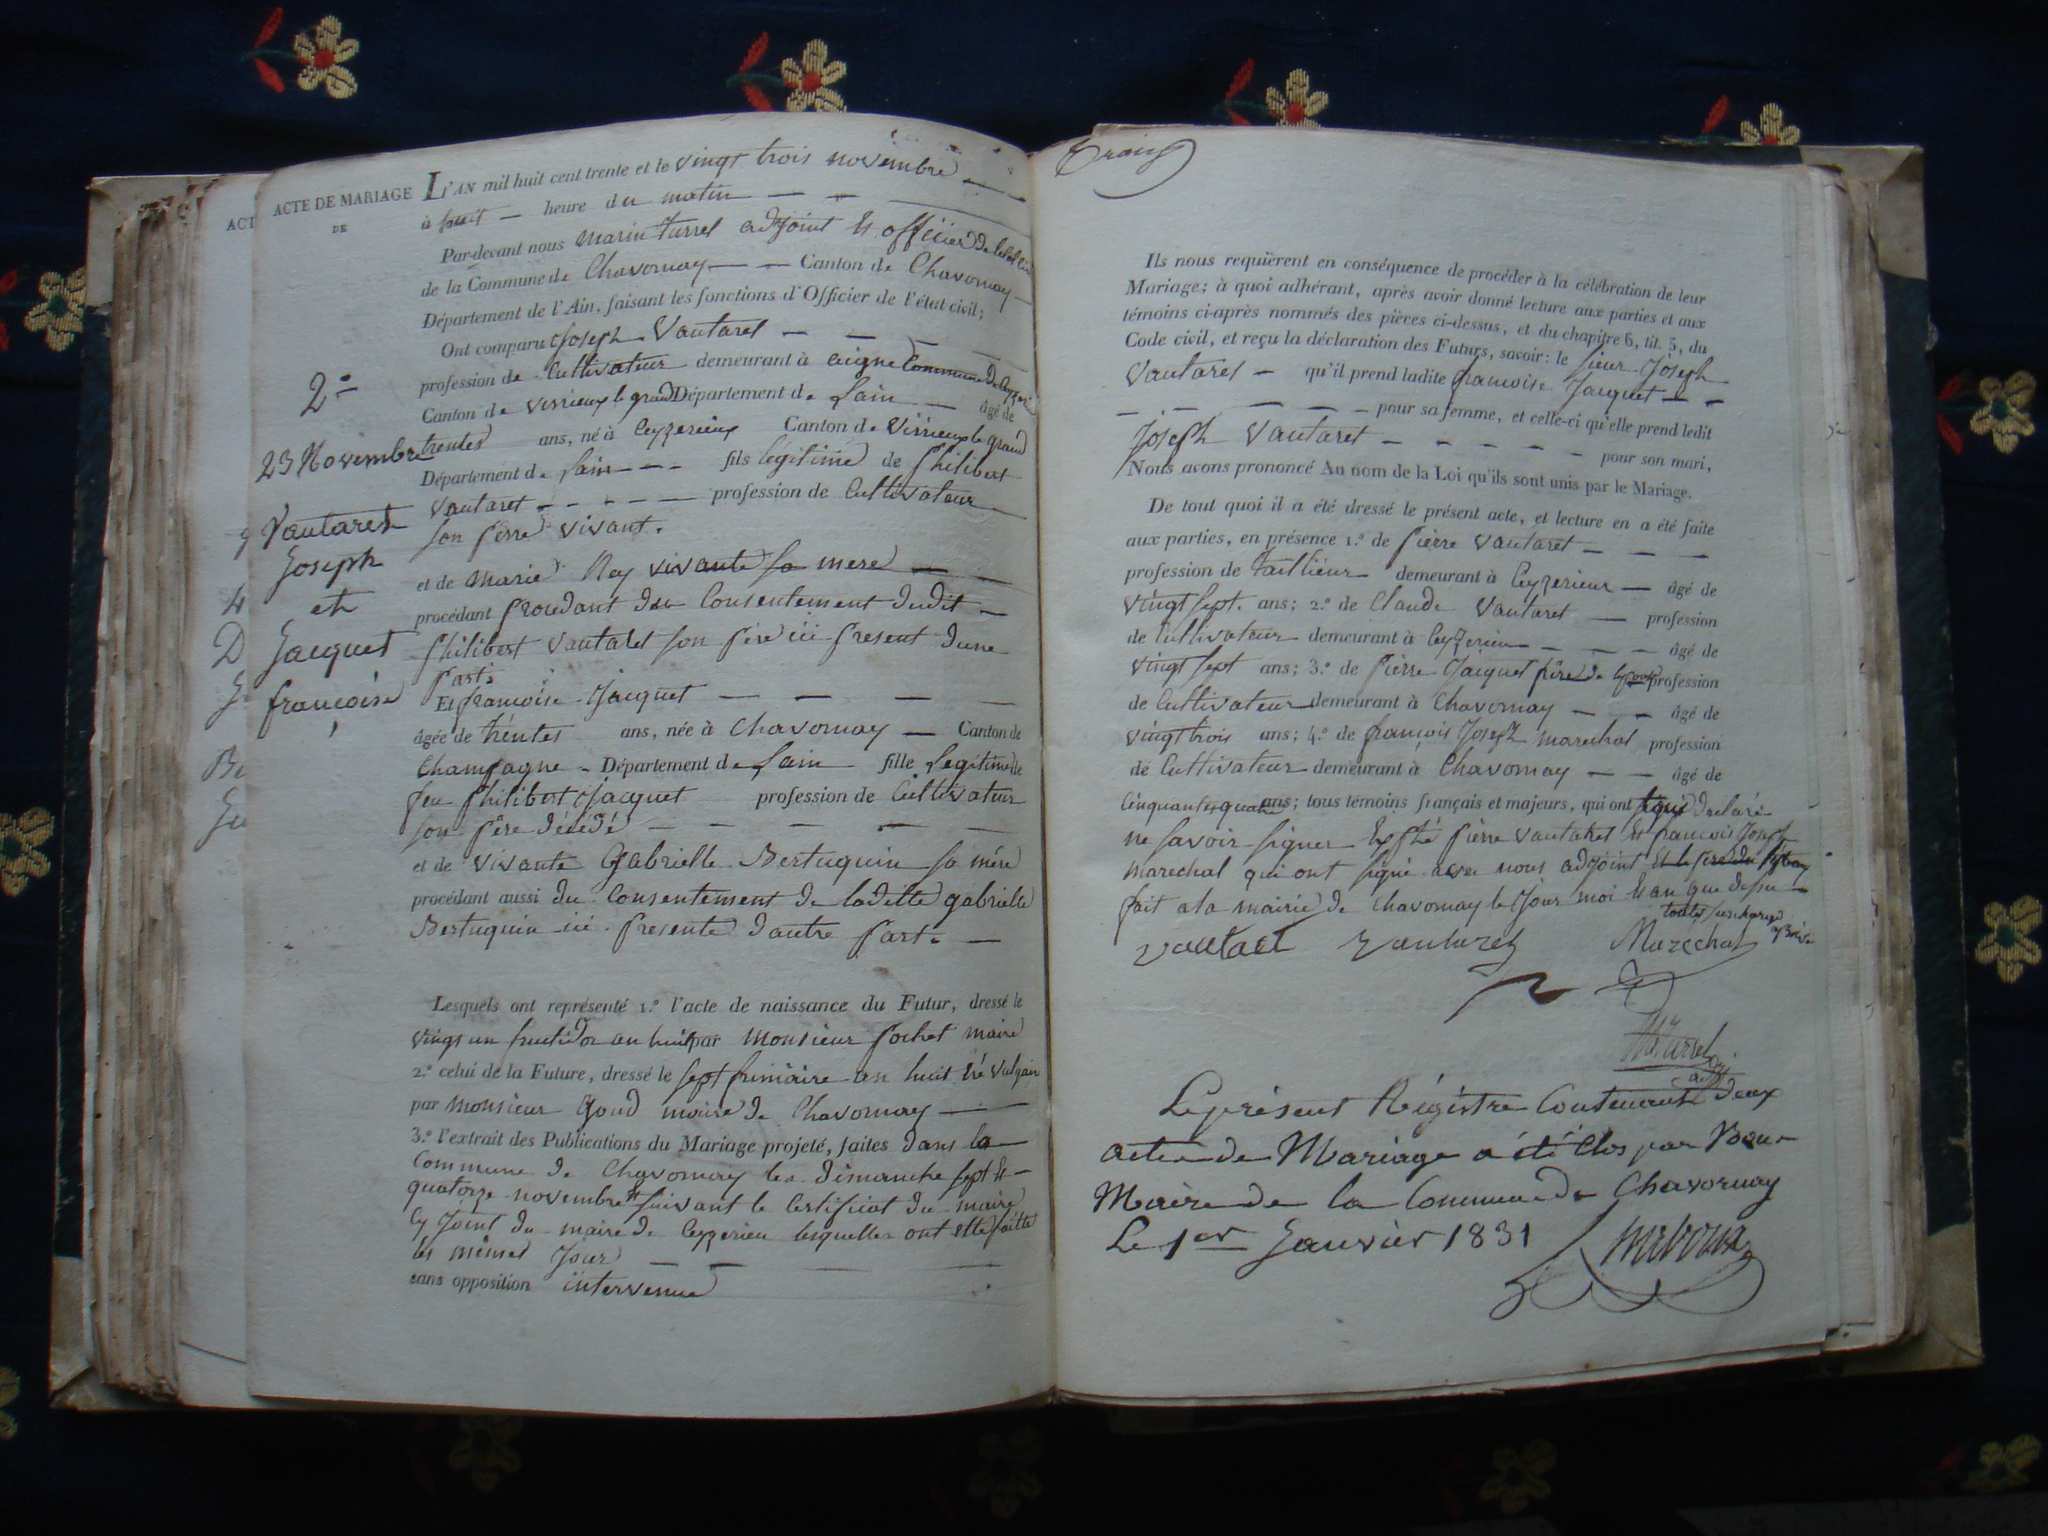 ACT
ACTE DE MARIAGE
DE
2e
23 Novembre
Vautaret
Joseph
et
Jacquet
françoise
L'AN mil huit cent trente et le vingt trois novembre
à huit heure du matin
Par-devant nous marin turrel adjoint et officier de
de la Commune de Chavornay Canton de Chavornay
Département de l'Ain, faisant les fonctions d'Officier de l'état civil;
Ont comparu Joseph Vautaret
profession de Cultivateur demeurant à aigne Commune de
Canton de virieux le grand Département de lain âgé de
trentes ans, né à Ceyzerieux Canton de virieux le grand
Département de lain fils legitime de philibert
vautaret profession de Cultivateur
son perre vivant.
et de marie Rey vivante sa mere
procédant procedant du Consentement dudit
philibert vautaret son père ici present dune
part.
Et françoise Jacquet
âgée de trentes ans, née à Chavornay Canton de
Champagne Département de lain fille legitime de
feu philibert Jacquet profession de Cultivateur
son père décédé
et de vivante Gabrielle Bertuquin sa mére
procédant aussi du Consentement de laditte gabrielle
Bertuquin ici presente dautre part.
Lesquels ont représenté 1.° l'acte de naissance du Futur, dressé le
vingt un fructidor an huit par monsieur pochet maire
2.° celui de la Future, dressé le sept frimaire an huit
par monsieur Goud maire de Chavornay
3.° l'extrait des Publications du Mariage projeté, faites dans la
Commune de Chavornay les dimanche sept et
quatorze novembre et suivant le Certificat du maire
cy joint du maire de Ceyzerieu lesquelles ont etté faitte
les mêmes jour
sans opposition intervenue
Ils nous requièrent en conséquence de procéder à la célébration de leur
Mariage; à quoi adhérant, après avoir donné lecture aux parties et aux
témoins ci-après nommés des pièces ci-dessus, et du chapitre 6, tit. 5, du
Code civil, et reçu la déclaration des Futurs, savoir: le sieur Joseph
Vautaret qu'il prend ladite françoise Jacquet
pour sa femme, et celle-ci qu'elle prend ledit
Joseph Vautaret pour son mari,
Nous avons prononcé Au nom de la Loi qu'ils sont unis par le Mariage.
De tout quoi il a été dressé le présent acte, et lecture en a été faite
aux parties, en présence 1.° de pierre vautaret
profession de tailleur demeurant à Ceyzerieur âgé de
vingt sept. ans; 2.° de Claude vautaret profession
de Cultivateur demeurant à Ceyzerieu âgé de
vingt sept ans; 3.° de pierre Jacquet frère de profession
de Cultivateur demeurant à Chavornay âgé de
vingt trois ans; 4.° de françois Joseph marechal profession
de Cultivateur demeurant à Chavornay âgé de
Cinquante quatre ans; tous témoins français et majeurs, qui ont declaré
ne savoir signer pierre vautaret et francois Joseph
marechal qui ont signé avec nous adjoint
fait a la mairie de chavornay le jour moi et an que dessu
Vautaret Vautaret Marechal
Turrel
adj
Le présent Régistre Contenant deux
actes de Mariage a été Clos par Nous
Maire de la Commune de Chavornay
Le 1er Janvier 1831